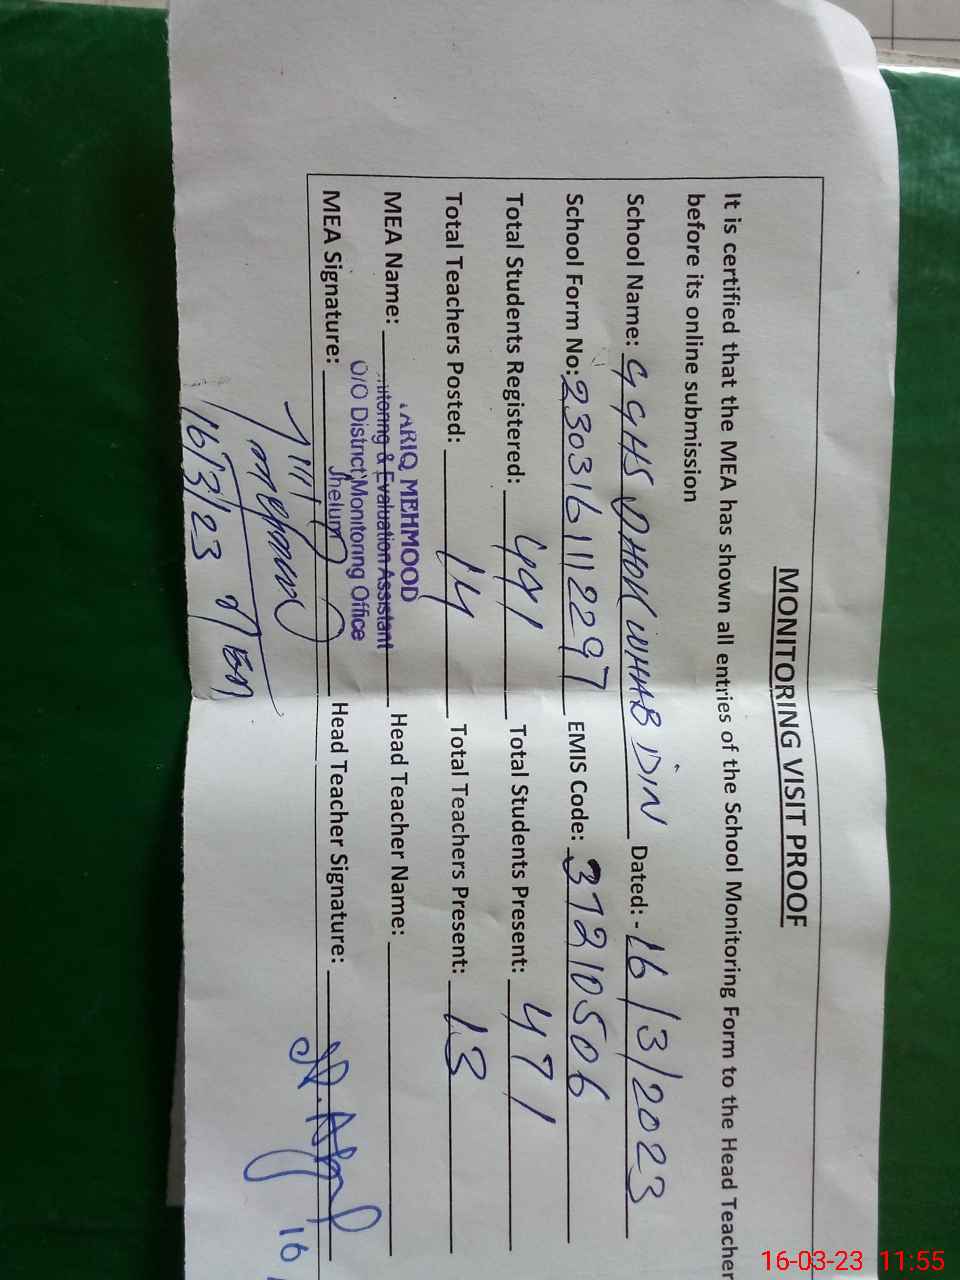 MONITORING VISIT PROOF
It is certified that the MEA has shown all entries of the School Monitoring Form to the Head Teacher
before its online submission
School Name: GGHS DHOK WHAB DIN Dated:- 16/3/2023
School Form No: 2303161112297 EMIS Code: 37210506
Total Students Registered: 441 Total Students Present: 471
Total Teachers Posted: 14 Total Teachers Present: 13
MEA Name: TARIQ MEHMOOD Head Teacher Name:
& Evaluation Assistant
O/O District Monitoring Office
Jhelum
MEA Signature: Head Teacher Signature:
16/3/23
16
16-03-23 11:55